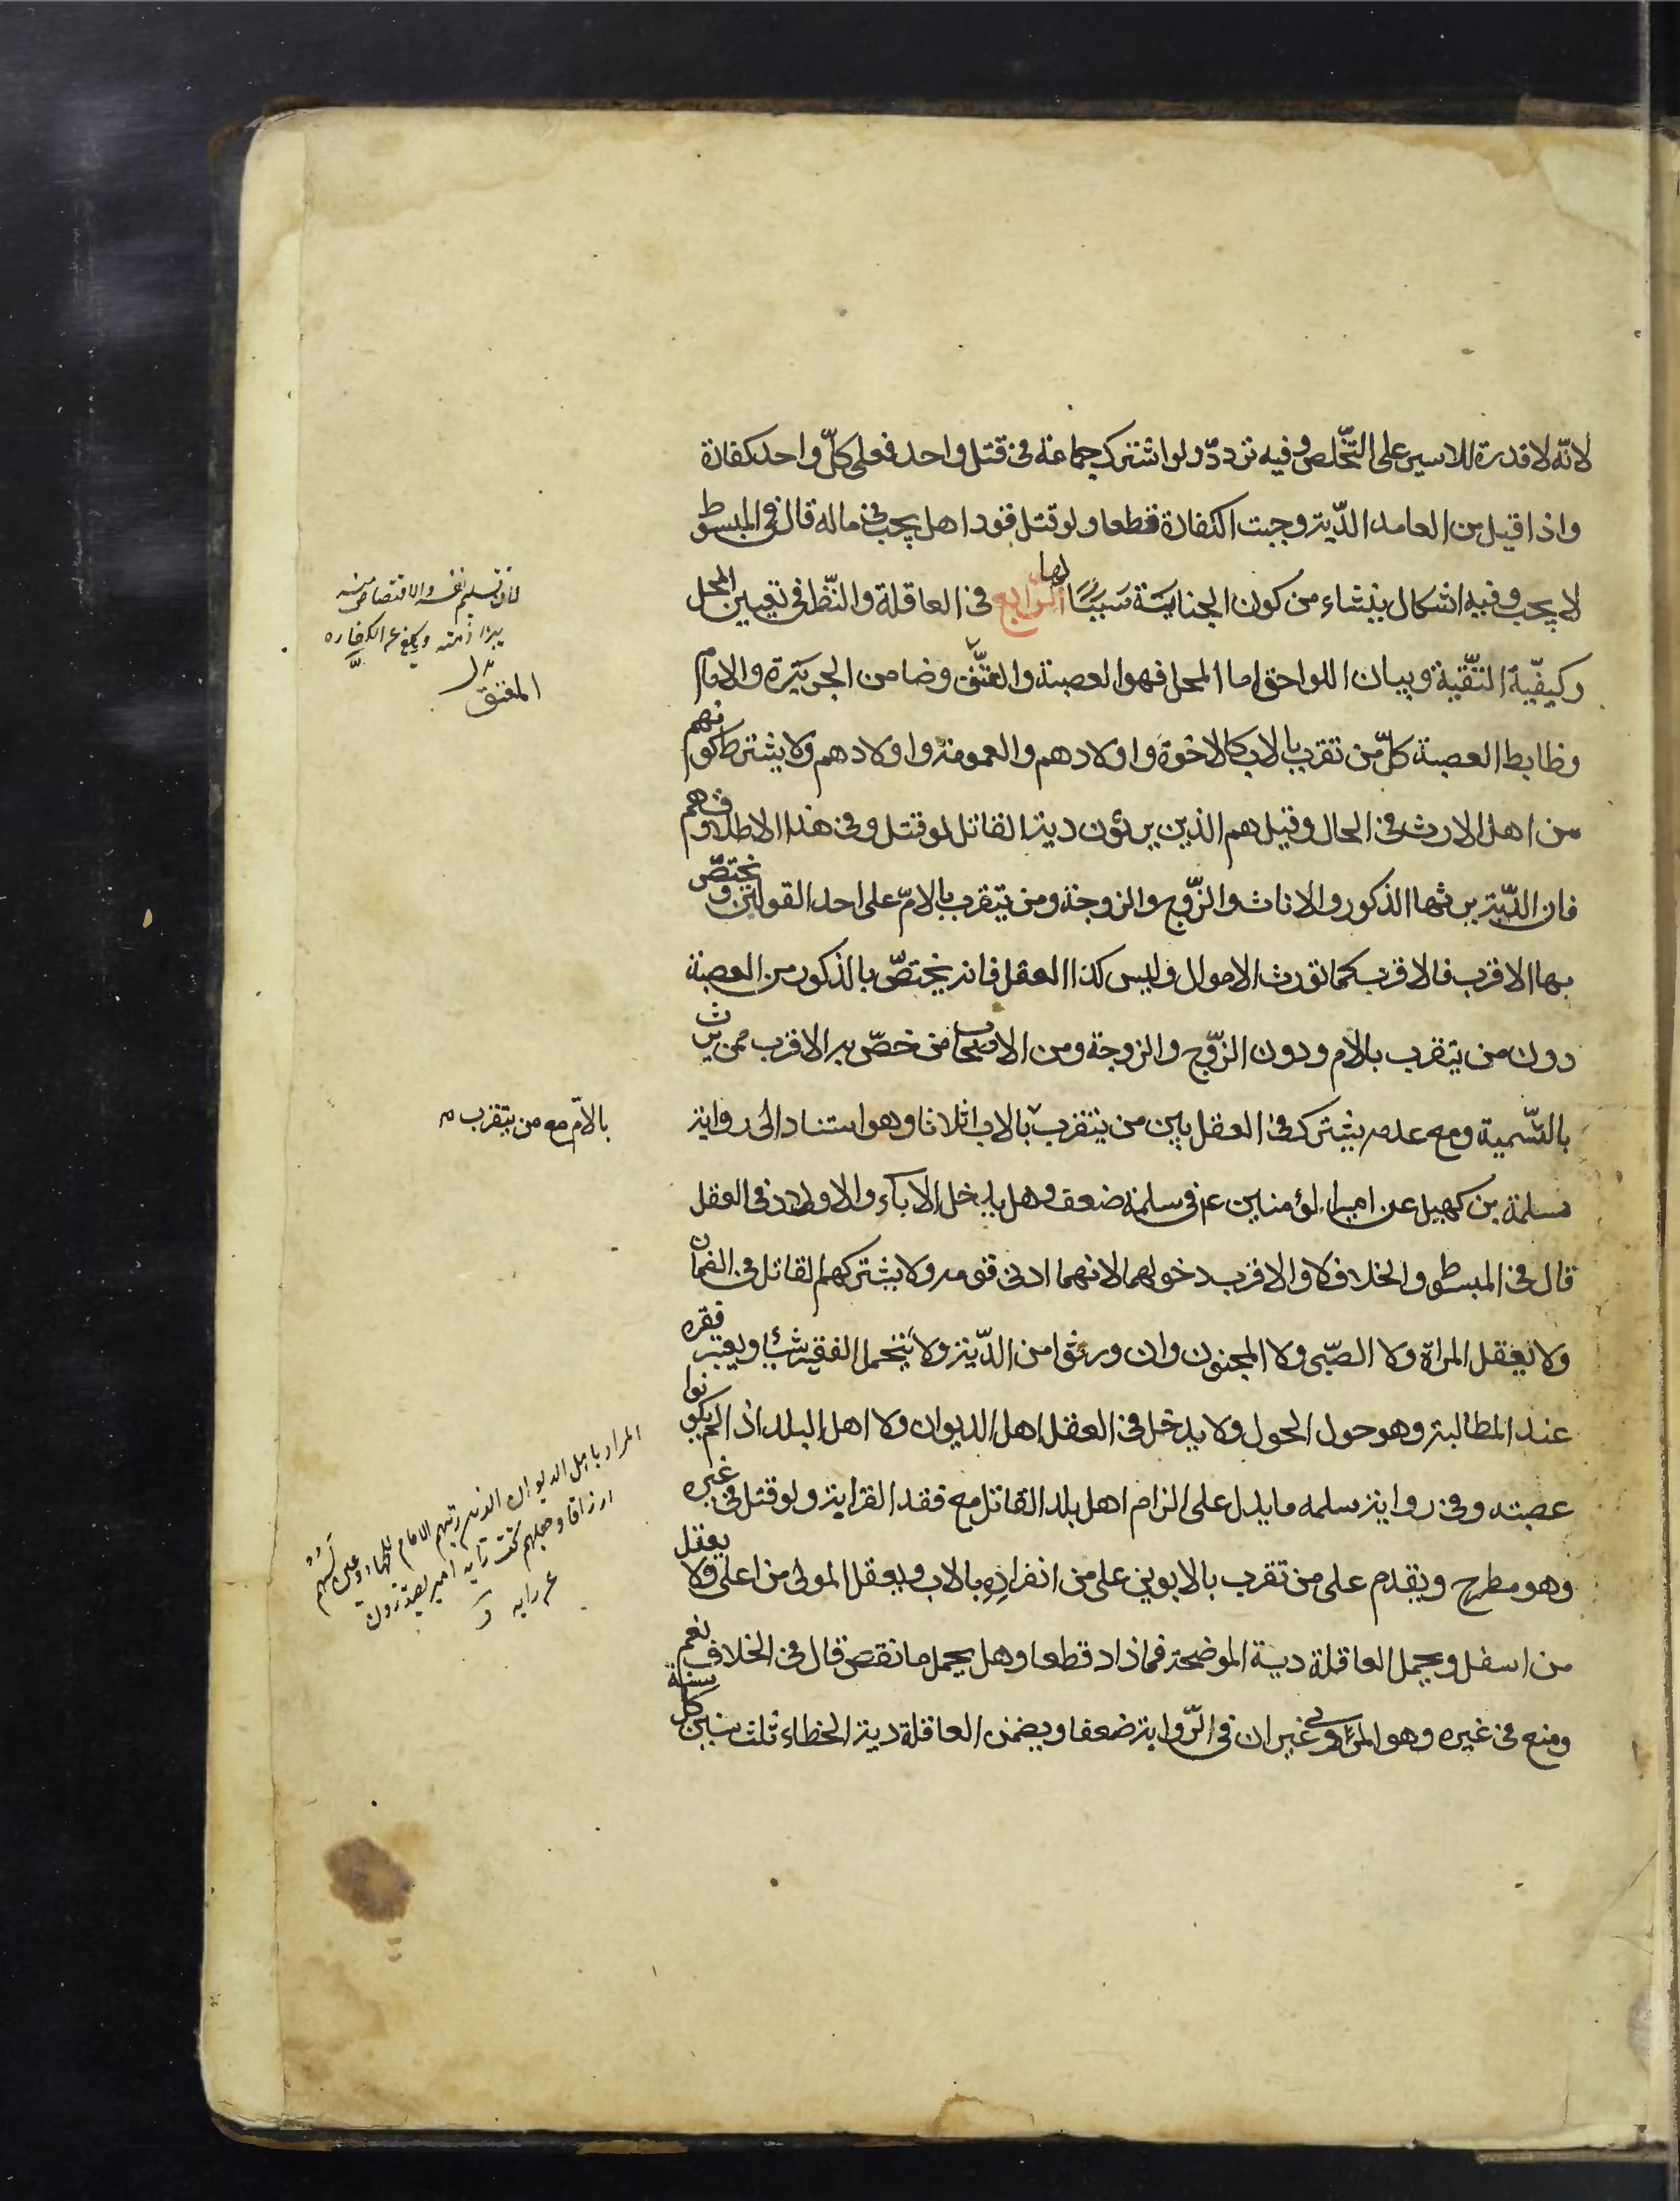 لانّه لا قدرة للاسير على التّخلص وفيه تردّد ولو اشترك جماعة فى قتل واحد فعلى كلّ واحد كفارة
واذا قبل من العامد الدّية وجبت الكفارة قطعا ولو قتل قودا هل يجب فى ماله قال فى المبسوط
لا يجب وفيه اشكال ينشاء من كون الجناية سببًا لها الرابع فى العاقلة والنّظر فى تعيين المحل
وكيفيّة التّقية وبيان اللواحق اما المحل فهو العصبة والمعتق وضامن الجريرة والامام
وظابط العصبة كلّ من تقرب بالاب كالاخوة واولادهم والعمومة واولادهم ولا يشترط كونهم
من اهل الارث فى الحال وقيل هم الذين يرثون دية القاتل لو قتل وفى هذا الاطلاق وهم
فان الدّية يرثها الذكور والاناث والزّوج والزوجة ومن يتقرب بالامّ على احد القولين ويختصّ
بها الاقرب فالاقرب كما تورث الاموال وليس كذا العقل فانه يختصّ بالذكور من العصبة
دون من يتقرب بالام ودون الزّوج والزوجة ومن الاصحاب من خصّ به الاقرب ممن يرث
بالتّسمية ومع عدمه يشترك فى العقل بين من يتقرب بالاب اثلاثا وهو استناد الى رواية
سلمة بن كهيل عن امير المؤمنين ع وفى سلمة ضعف وهل يدخل الاباء والاولاد فى العقل
قال فى المبسوط والخلاف لا والاقرب دخولهما لانهما ادنى قومه ولا يشتركهم القاتل فى الضمان
ولا يعقل المراة ولا الصّبى ولا المجنون وان ورثوا من الدّية ولا يتحمل الفقير شيئا ويعتبر فقره
عند المطالبة وهو حول الحول ولا يدخل فى العقل اهل الديوان ولا اهل البلد اذا لم يكونوا
عصبته وفى رواية سلمه ما يدل على الزام اهل بلد القاتل مع فقد القرابة ولو قتل فى غيره
وهو مطرح ويقدم على من تقرب بالابوين على من انفراده بالاب ويعقل المولى من اعلى ولا يعقل
من اسفل ويحمل العاقلة دية الموضحة فما زاد قطعا وهل يحمل ما نقص قال فى الخلاف نعم
ومنع فى غيره وهو المروى غير ان فى الرّواية ضعفا ويضمن العاقلة دية الخطاء ثلث سنين كل سنة
لان تسليم نفسه والاقتصاص منه
المعتق
بالامّ مع من يتقرب
المراد باهل الديوان الذين رتبهم الامام للجهاد
ارزاقا وجعلهم تحت راية امير يصدرون
عن رايه